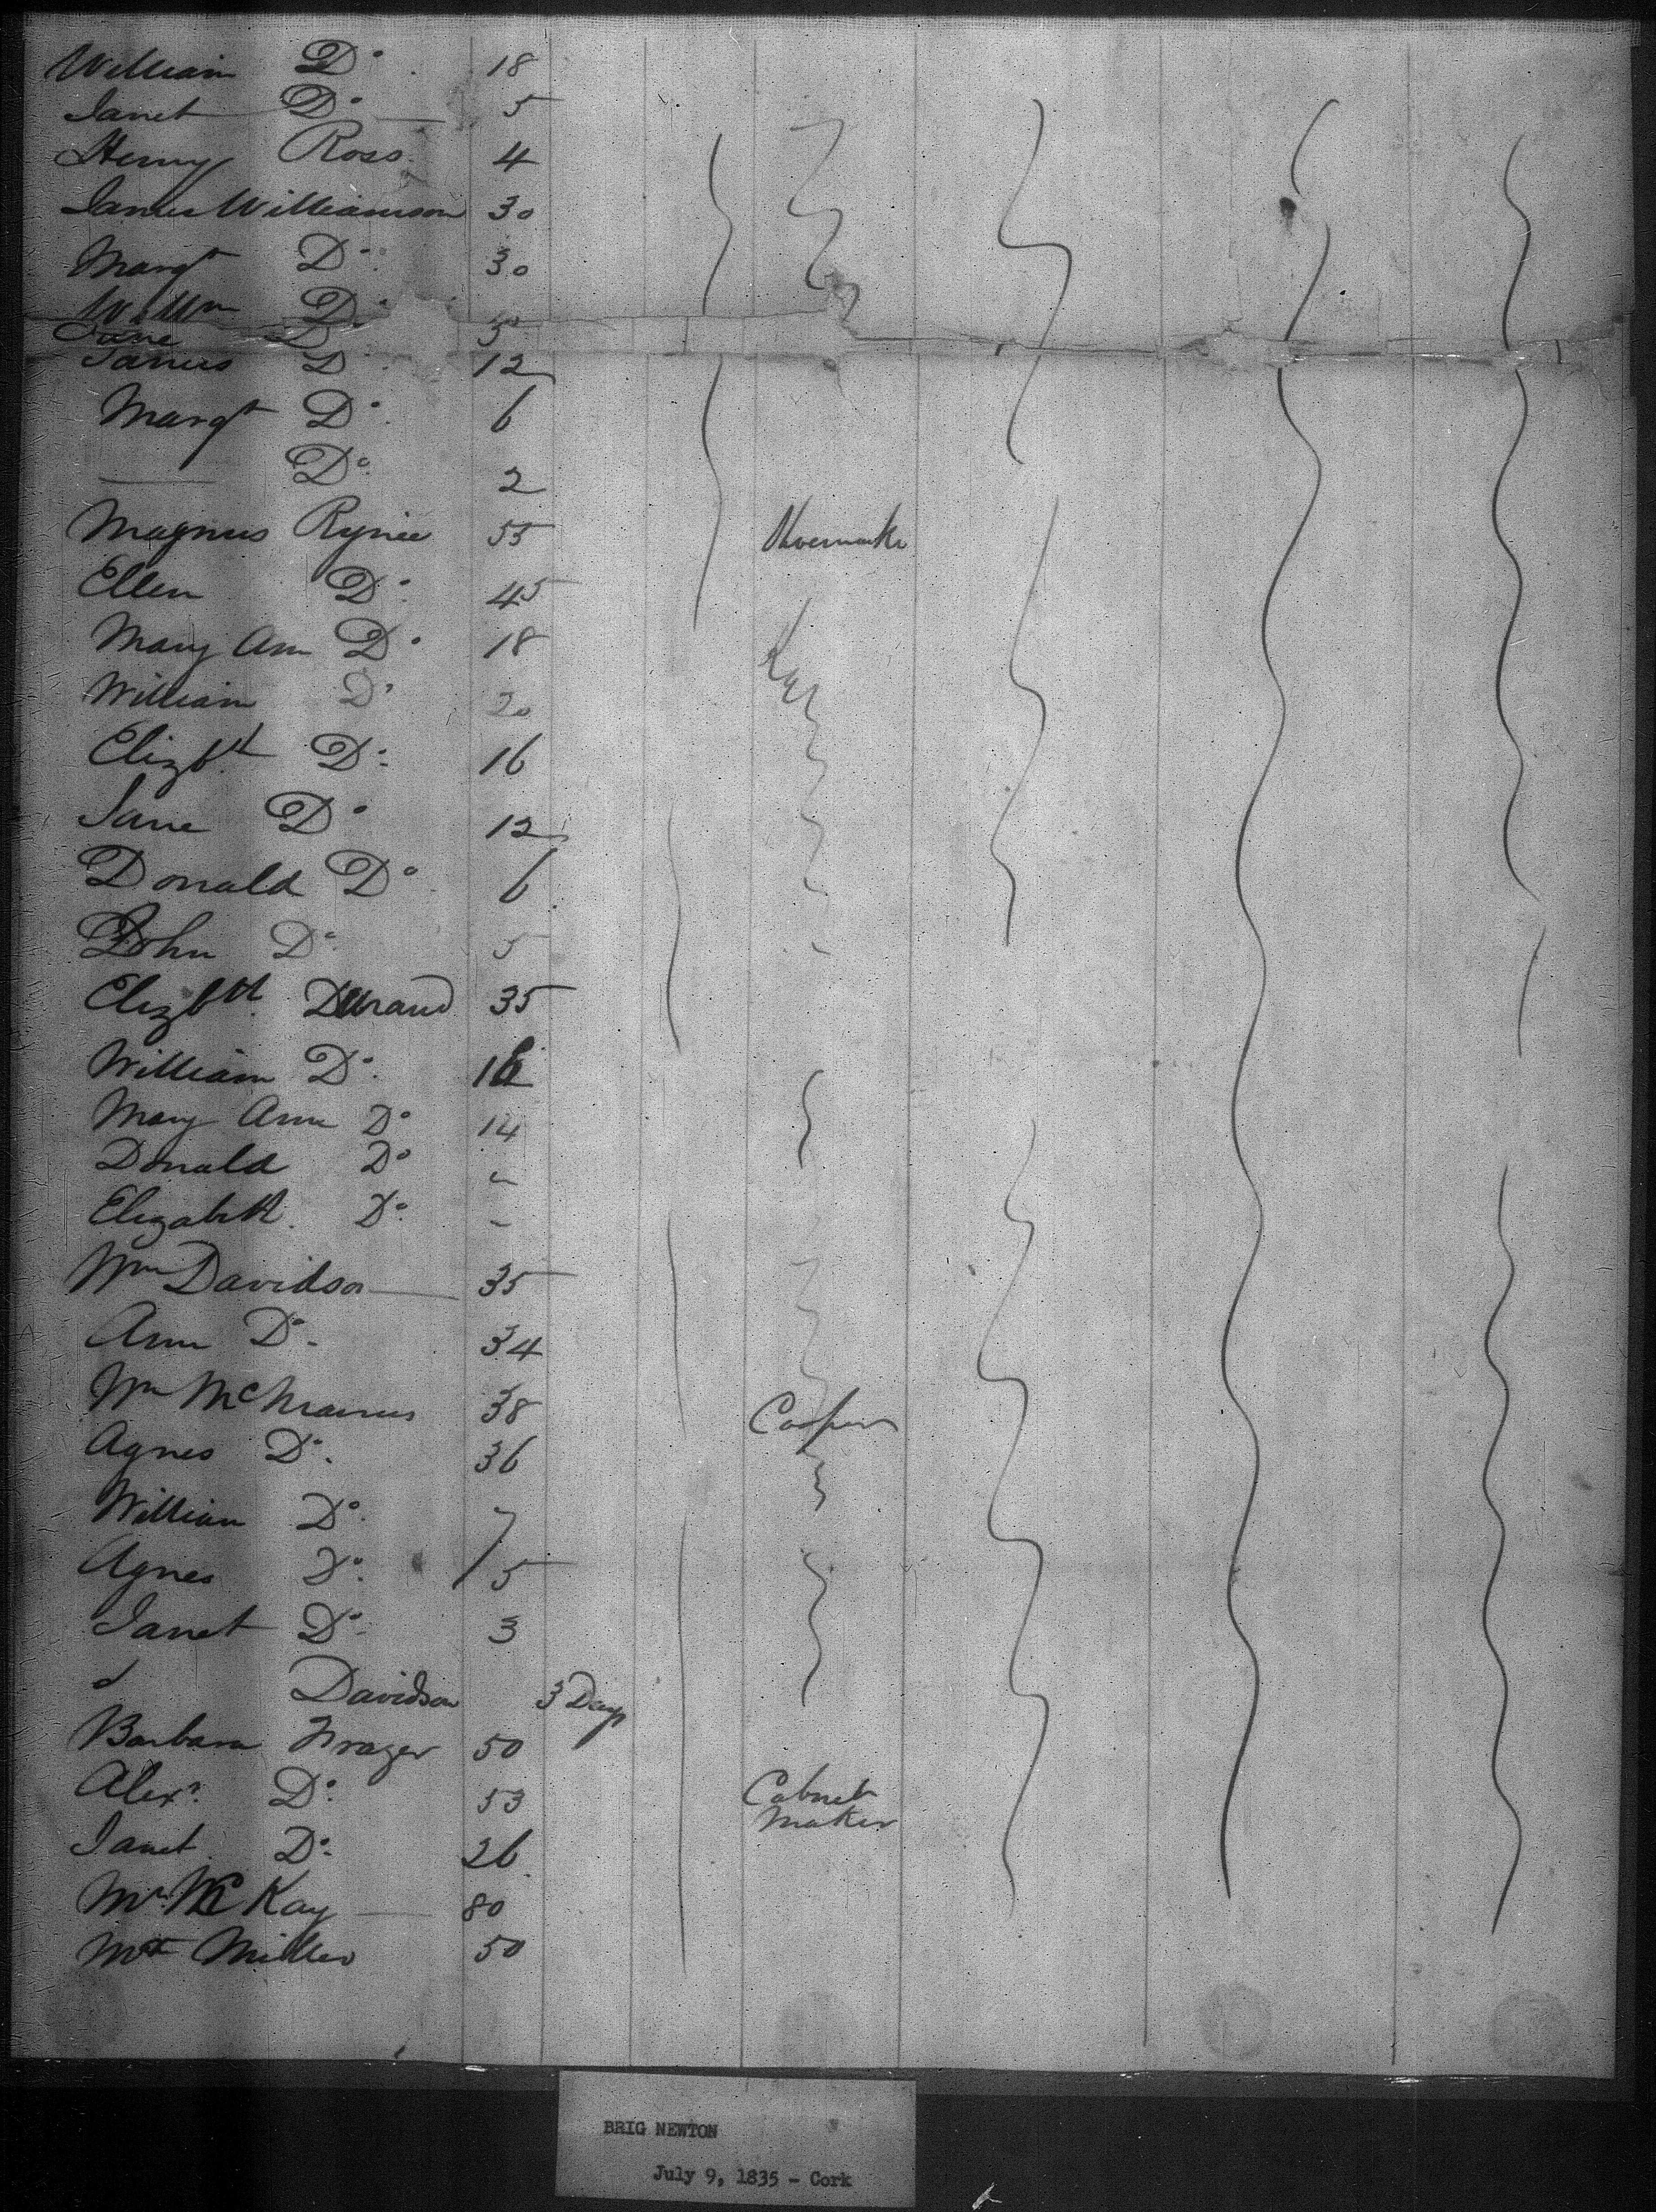 William Do 18
Janet Do 5
Henry Ross 4
James Williamson 30
Margt Do 30
Willm Do
Jane Do
James Do 12
Margt Do 6
Do 2
Magnus 55 Shoemaker
Ellen Do 45
Mary Ann Do 18
William Do 20
Elizbth Do 16
Jane Do 12
Donald Do 6
John Do 5
Elizbth Durand 35
William Do
Mary Ann Do 14
Donald Do
Elizabeth Do
Wm Davidson 35
Ann Do 34
Wm 38 Cooper
Agnes Do 36
William Do 7
Agnes Do 5
Janet Do 3
Davidson 3 Days
Barbara Frazer 50
Alexr Do 53 Cabnet
Maker
Janet Do 26
McKay 80
Miller 50
BRIG NEWTON
July 9, 1835 - Cork